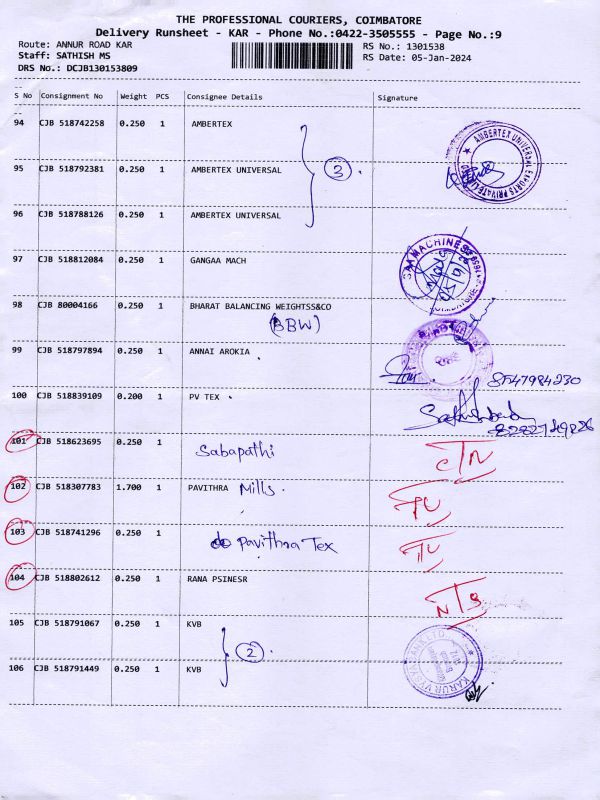 THE PROFESSIONAL COURIERS, COIMBATORE
Delivery Runsheet - KAR - Phone No.:0422-3505555 - Page No.:9
Route: ANNUR ROAD KAR RS No.: 1301538
Staff: SATHISH MS RS Date: 05-Jan-2024
DRS No.: DCJB130153809
S No Consignment No Weight PCS Consignee Details Signature
94 CJB 518742258 0.250 1 AMBERTEX
95 CJB 518792381 0.250 1 AMBERTEX UNIVERSAL 3
AMBERTEX UNIVERSAL EXPORTS PRIVATE LIMITED
96 CJB 518788126 0.250 1 AMBERTEX UNIVERSAL
97 CJB 518812084 0.250 1 GANGAA MACH
98 CJB 80004166 0.250 1 BHARAT BALANCING WEIGHTSS&CO
(BBW)
99 CJB 518797894 0.250 1 ANNAI AROKIA
8547984230
100 CJB 518839109 0.200 1 PV TEX
101 CJB 518623695 0.250 1 Sabapathi
102 CJB 518307783 1.700 1 PAVITHRA Mills.
103 CJB 518741296 0.250 1 Pavithra Tex
104 CJB 518802612 0.250 1 RANA PSINESR NTS
105 CJB 518791067 0.250 1 KVB
2
106 CJB 518791449 0.250 1 KVB